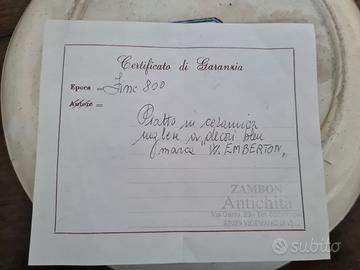 Certificato di Garanzia
Epoca = Fine 800
Autore =
Piatto in ceramica
inglese a "decori blu
marca W. EMBERTON"
ZAMBON
Antichità
subito